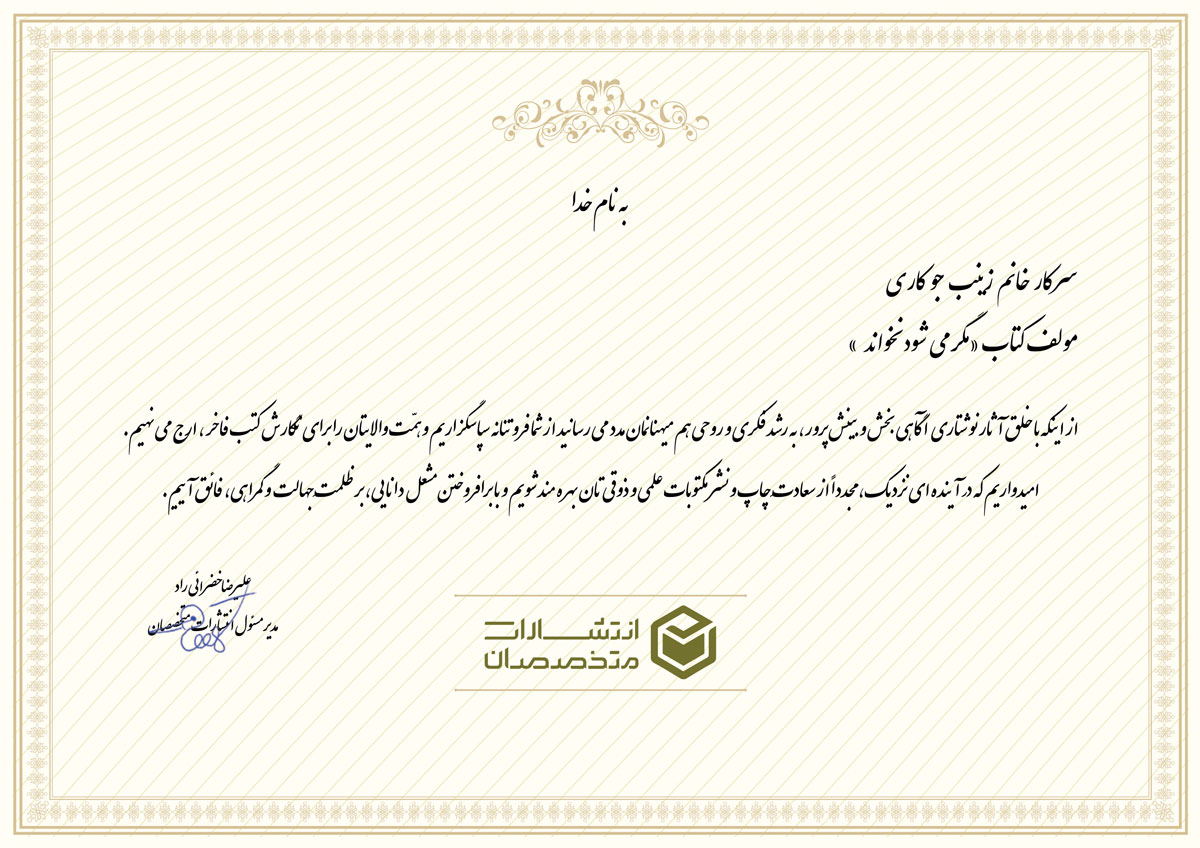 به نام خدا
سرکار خانم زینب جوکاری
مولف کتاب «مگر می شود نخواند »
از اینکه با خلق آثار نوشتاری آگاهی بخش و بینش پرور، به رشد فکری و روحی هم میهنانمان مدد می رسانید از شما فروتنانه سپاسگزاریم و همّت والایتان را برای نگارش کتب فاخر ، ارج می نهیم.
امیدواریم که در آینده ای نزدیک، مجدداً از سعادت چاپ و نشر مکتوبات علمی و ذوقی تان بهره مند شویم و با برافروختن مشعل دانایی، بر ظلمت جهالت و گمراهی، فائق آییم .
علیرضا خضرائی راد
مدیر مسئول انتشارات متخصصان
انتشارات
متخصصان